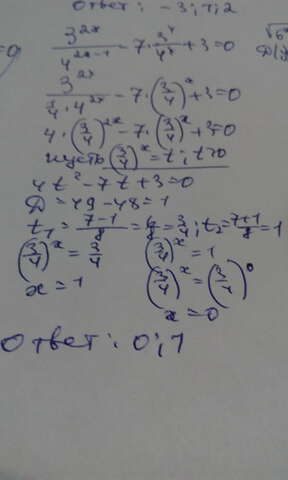 Ответ: -3; 1; 2
3^{2x}/4^{2x-1} - 7·3^x/4^x + 3 = 0
3^{2x}/(1/4 · 4^{2x}) - 7·(3/4)^x + 3 = 0
4·(3/4)^{2x} - 7·(3/4)^x + 3 = 0
пусть (3/4)^x = t; t>0
4t² - 7t + 3 = 0
D = 49 - 48 = 1
t₁ = (7-1)/8 = 6/8 = 3/4; t₂ = (7+1)/8 = 1
(3/4)^x = 3/4 (3/4)^x = 1
x = 1 (3/4)^x = (3/4)^0
x = 0
Ответ: 0; 1